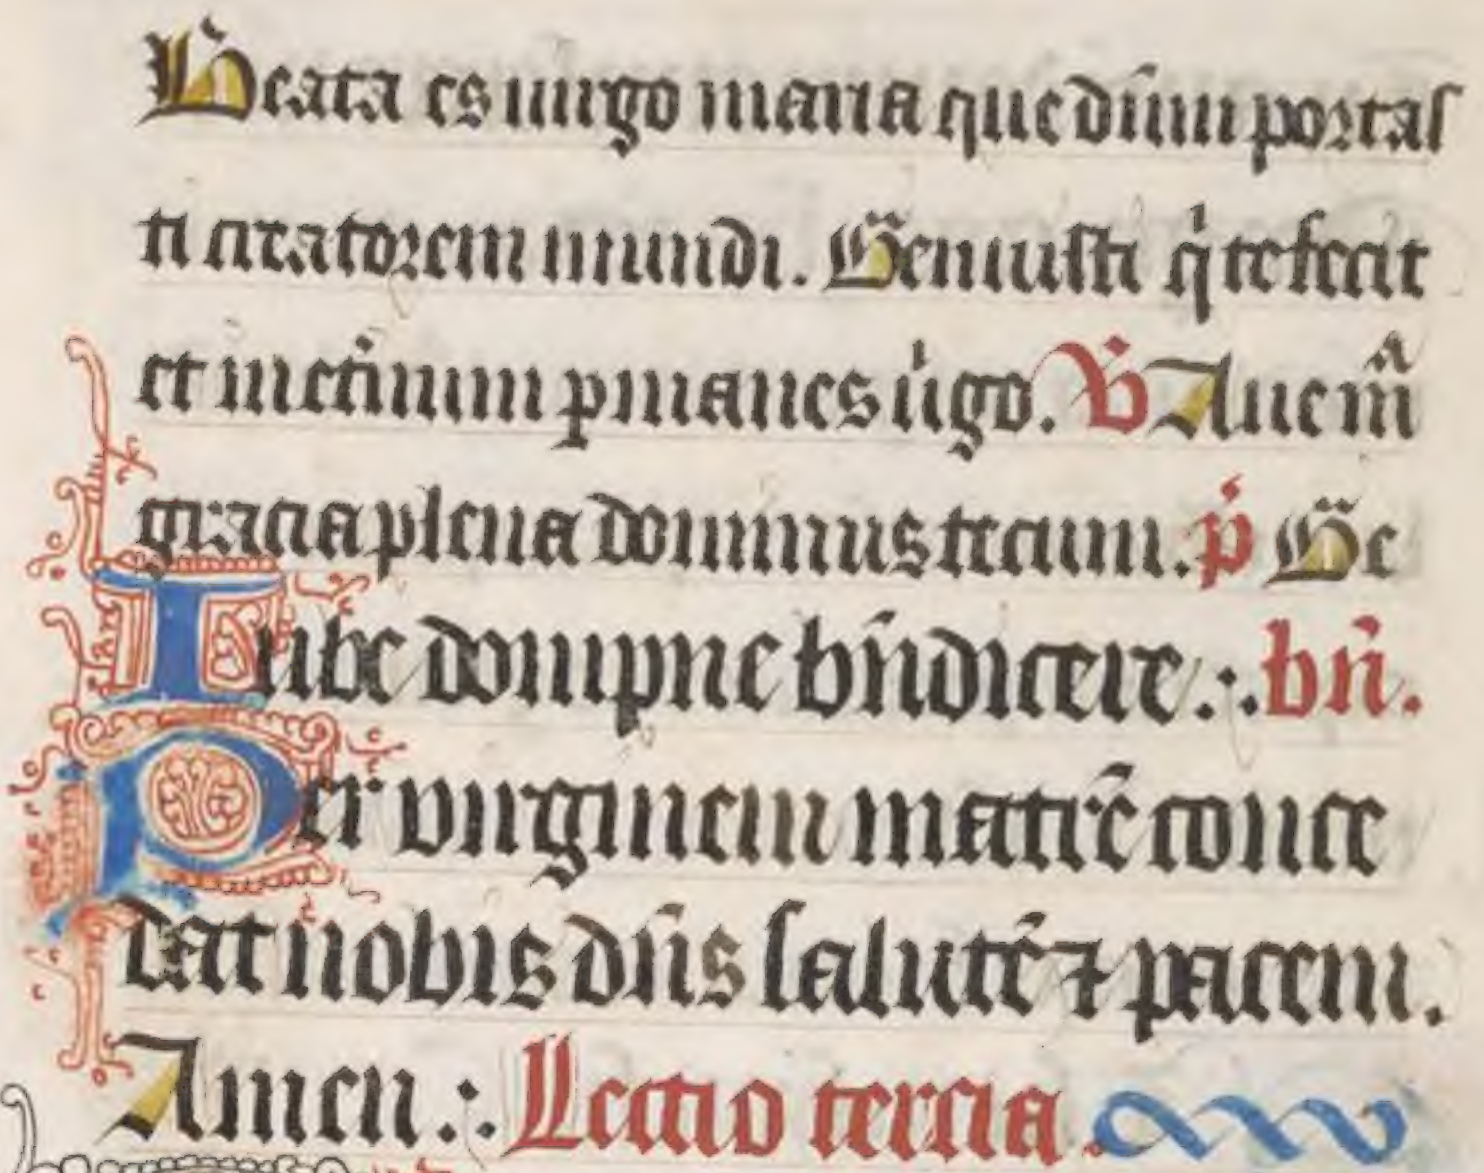 Beata es uirgo maria que dn̄m portas
ti creatorem mundi. Genuisti q̇ te fecit
et inet̄num p̄manes u̇go. V̇ Aue mᷓa
gracia plena dominus tecum. ṗ Ge
Iube dompne bn̄dicere :. bn̄.
Per virginem matrē conce
dat nobis dn̄s salutē ⁊ pacem.
Amen :. Lectio tercia.